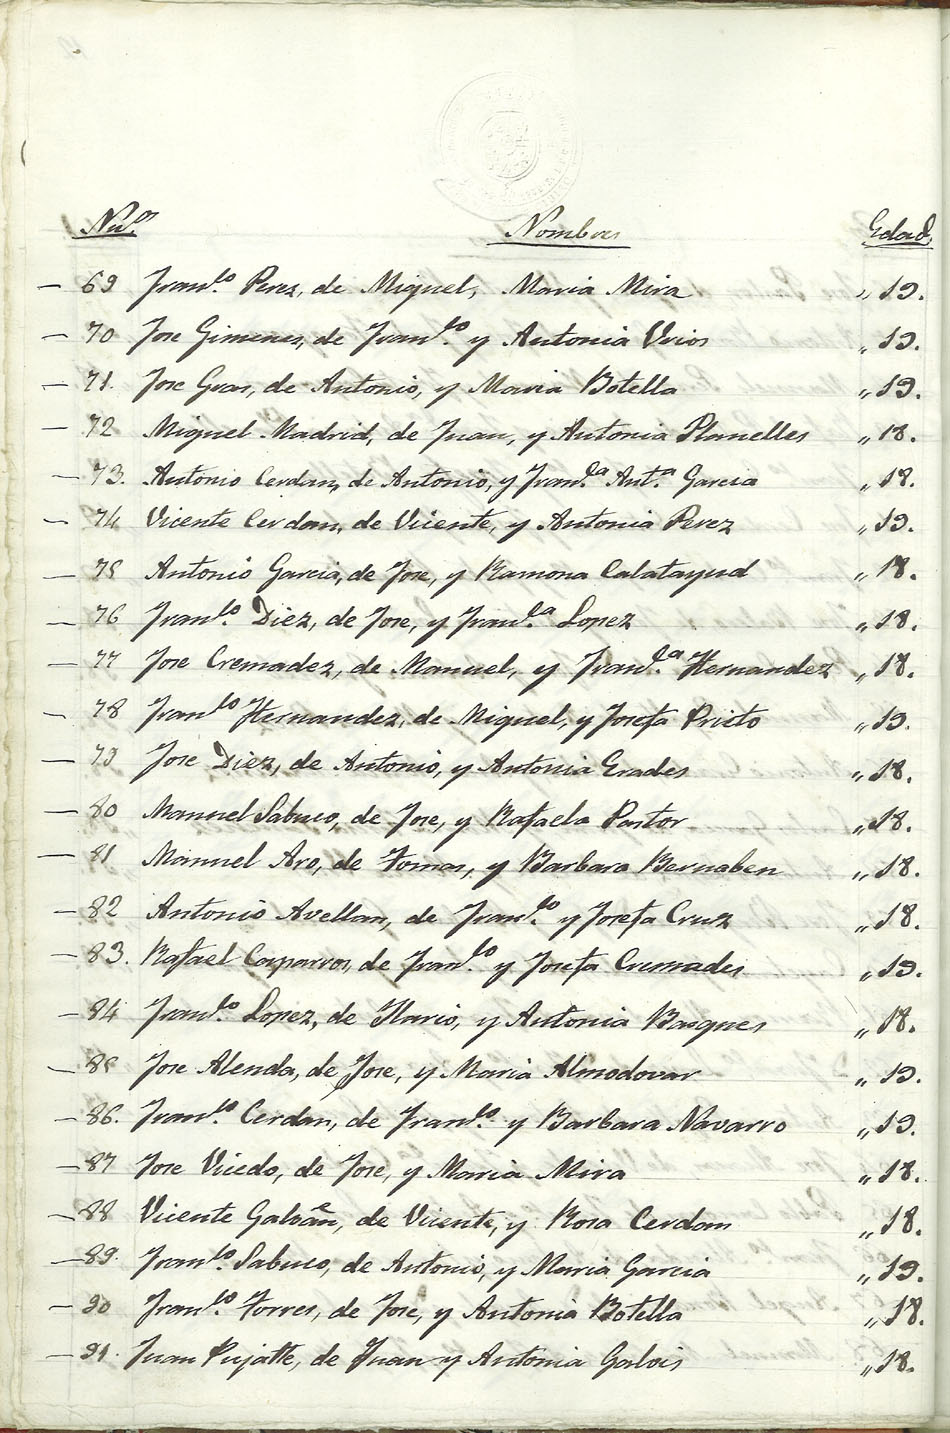 Nu.os Nombres Edad.
— 69 Fran.co Perez, de Miguel, Maria Mira „ 19.
— 70 Jose Gimenez, de Fran.co y Antonia Verios „ 19.
— 71. Jose Gras, de Antonio, y Maria Botella „ 19.
— 72 Miguel Madrid, de Juan, y Antonia Planelles „ 18.
— 73. Antonio Cerdan, de Antonio, y Fran.ca Ant.a Garcia „ 18.
— 74 Vicente Cerdan, de Vicente, y Antonia Perez „ 19.
— 75 Antonio Garcia, de Jose, y Ramona Calatayud „ 18.
— 76 Fran.co Diez, de Jose, y Fran.ca Lopez „ 18.
— 77 Jose Cremadez, de Manuel, y Fran.ca Hernandez „ 18.
— 78 Fran.co Hernandez, de Miguel, y Josefa Prieto „ 19.
— 79 Jose Diez, de Antonio, y Antonia Grades „ 18.
— 80 Manuel Sabuco, de Jose, y Rafaela Pastor „ 18.
— 81 Manuel Aro, de Tomas, y Barbara Bernaben „ 18.
— 82 Antonio Avellan, de Fran.co y Josefa Cruz „ 18.
— 83. Rafael Caparros, de Fran.co y Josefa Cremades „ 19.
— 84 Fran.co Lopez, de Ilario, y Antonia Basques „ 18.
— 85 Jose Alenda, de Jose, y Maria Almodovar „ 19.
— 86. Fran.co Cerdan, de Fran.co y Barbara Navarro „ 19.
— 87 Jose Vicedo, de Jose, y Maria Mira „ 18.
— 88 Vicente Galvañ, de Vicente, y Rosa Cerdan „ 18.
— 89. Fran.co Sabuco, de Antonio, y Maria Garcia „ 19.
— 90 Fran.co Torres, de Jose, y Antonia Botella „ 18.
— 91. Juan Pujalte, de Juan y Antonia Galvis „ 18.